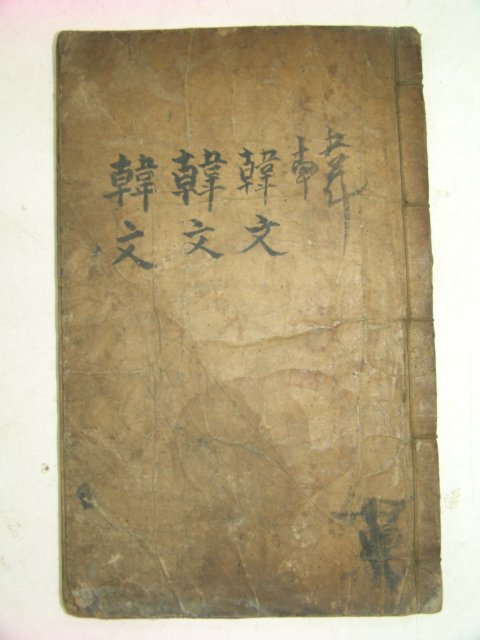 韓
韓文
韓文
韓文